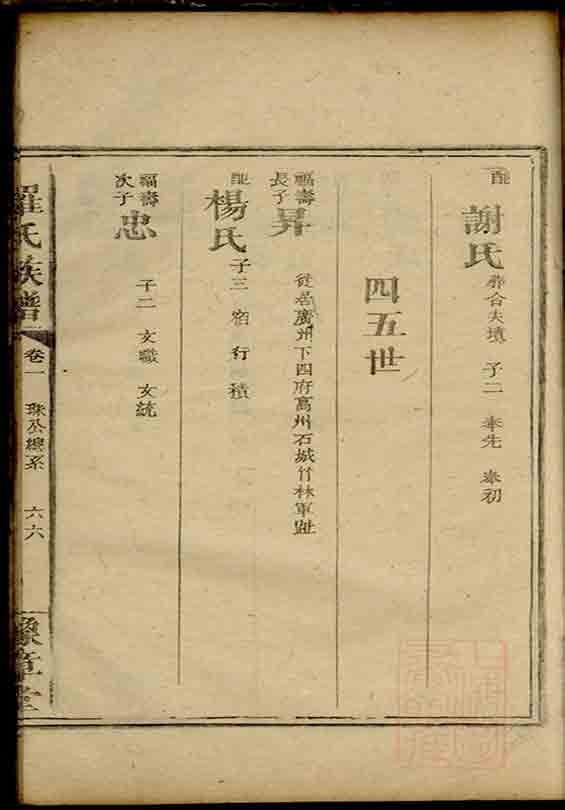 配
謝氏
葬合夫墳 子二 奉先 奉初
四五世
福壽
長子
昇
徙居廣州下四府高州石城竹林軍
配
楊氏
子三 宿 行 積
福壽
次子
忠
子二 文職 文統
羅氏族譜
卷一
珠公總系
六六
豫章堂